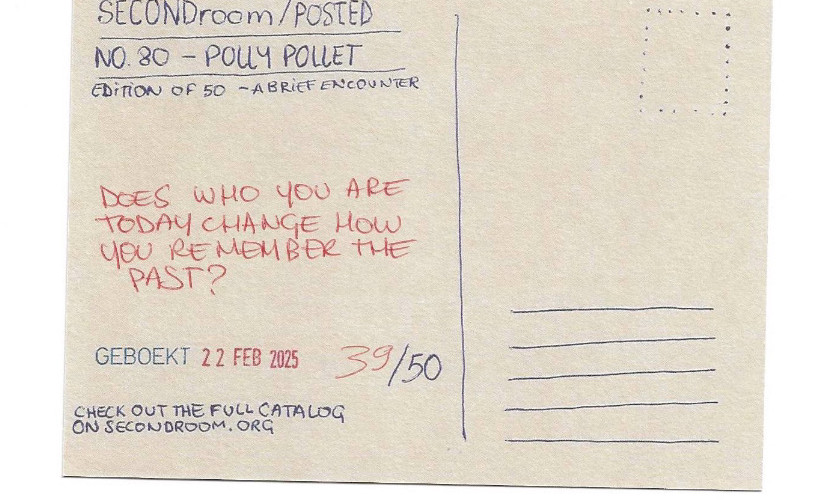 SECONDroom/POSTED
NO. 80 – POLLY POLLET
EDiTiON OF 50 – A BRiEF ENCOUNTER
DOES WHO YOU ARE
TODAY CHANGE HOW
YOU REMEMBER THE
PAST?
GEBOEKT 22 FEB 2025 39/50
CHECK OUT THE FULL CATALOG
ON SECONDROOM.ORG